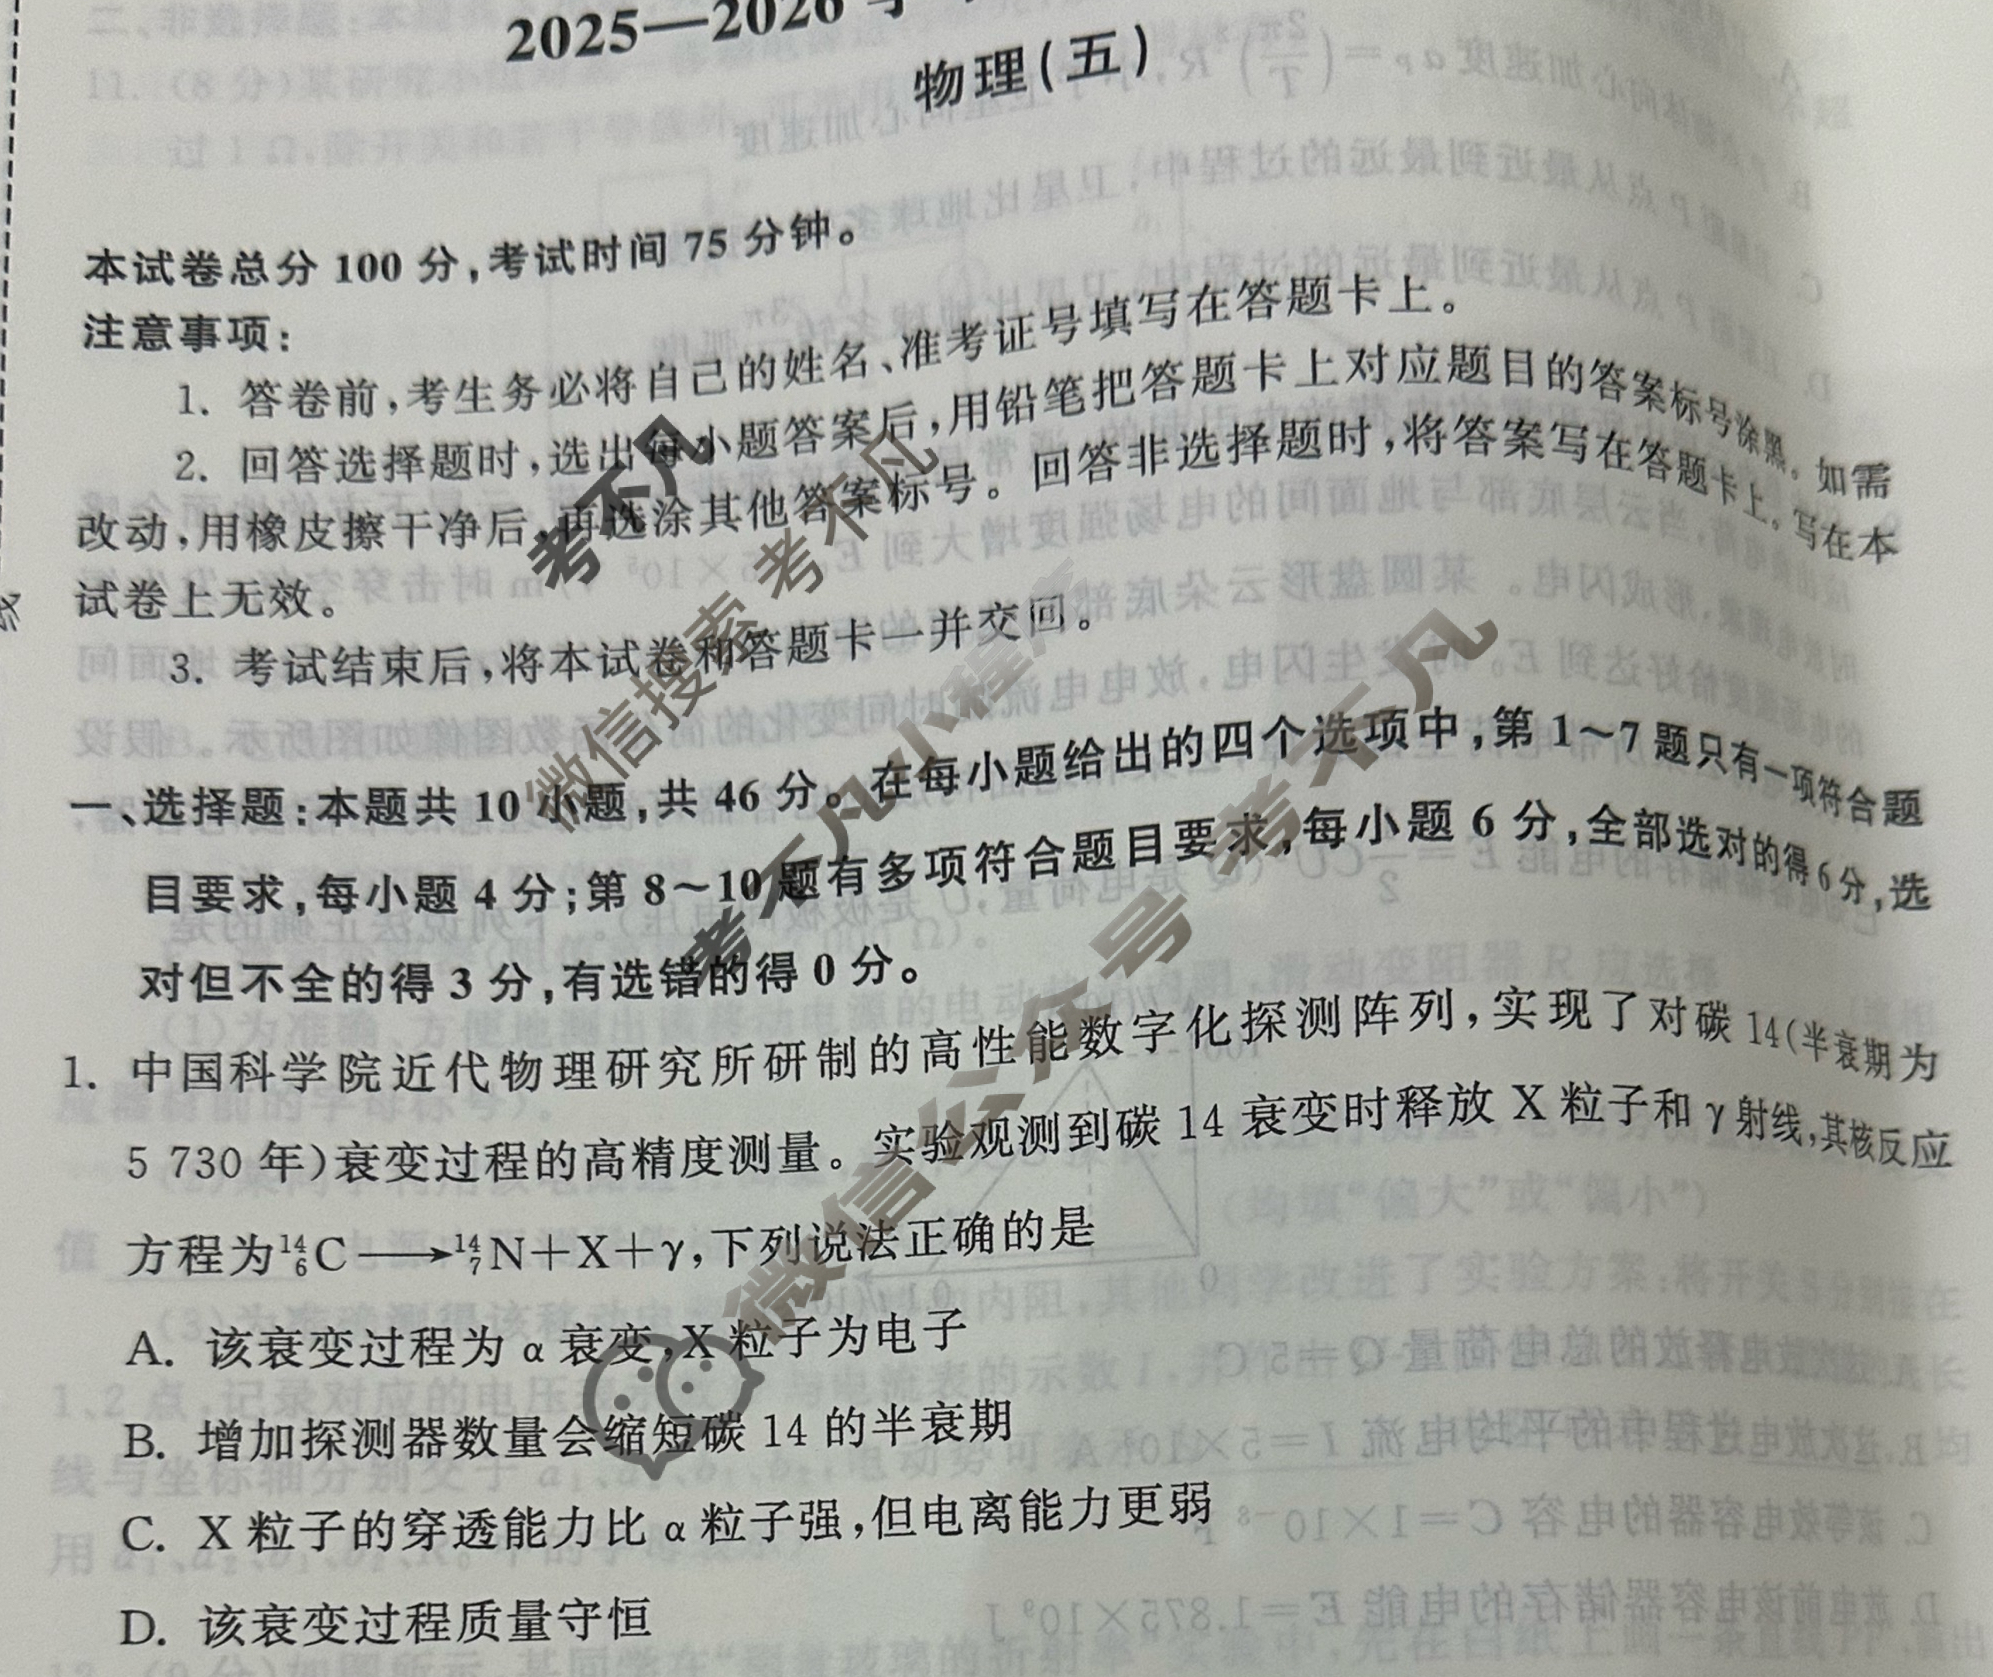 2025—2026
物理(五)
本试卷总分 100 分,考试时间 75 分钟。
注意事项:
1. 答卷前,考生务必将自己的姓名、准考证号填写在答题卡上。
2. 回答选择题时,选出每小题答案后,用铅笔把答题卡上对应题目的答案标号涂黑。如需
改动,用橡皮擦干净后,再选涂其他答案标号。回答非选择题时,将答案写在答题卡上。写在本
试卷上无效。
3. 考试结束后,将本试卷和答题卡一并交回。
一、选择题:本题共 10 小题,共 46 分。在每小题给出的四个选项中,第 1～7 题只有一项符合题
目要求,每小题 4 分;第 8～10 题有多项符合题目要求,每小题 6 分,全部选对的得 6 分,选
对但不全的得 3 分,有选错的得 0 分。
1. 中国科学院近代物理研究所研制的高性能数字化探测阵列,实现了对碳 14(半衰期为
5 730 年)衰变过程的高精度测量。实验观测到碳 14 衰变时释放 X 粒子和 γ 射线,其核反应
方程为¹⁴₆C ⟶ ¹⁴₇N＋X＋γ,下列说法正确的是
A. 该衰变过程为 α 衰变,X 粒子为电子
B. 增加探测器数量会缩短碳 14 的半衰期
C. X 粒子的穿透能力比 α 粒子强,但电离能力更弱
D. 该衰变过程质量守恒
考不凡
微信搜索 考不凡
考不凡小程序
微信公众号 考不凡